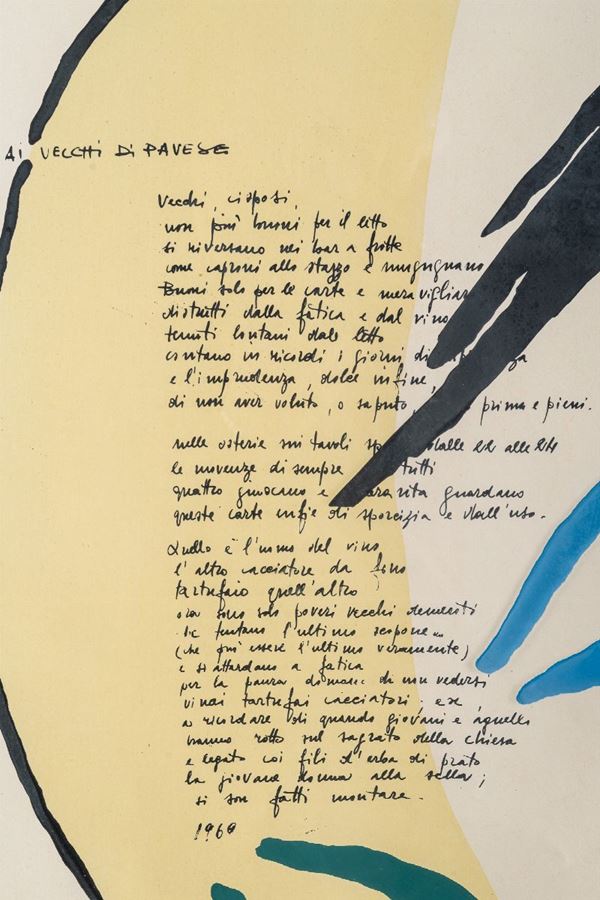 AI VECCHI DI PAVESE
Vecchi, cisposi,
non più buoni per il letto
si riversano nei bar a frotte
come caproni allo stazzo e mugugnano
Buoni solo per le carte e meravigliar
distrutti dalla fatica e dal vino
tenuti lontani dal letto
contano in ricordi i giorni di
e l'imprudenza, dolce infine,
di non aver voluto, o saputo, prima e pieni.
nelle osterie sui tavoli dalle 22 alle 24
le movenze di sempre tutti
quattro giocano e guardano
queste carte unte di sporcizia e dall'uso.
Quello è l'uomo del vino
l'altro cacciatore da fino
tartufaio quell'altro
ora sono solo poveri vecchi dementi
tentano l'ultimo scopone...
(che può essere l'ultimo veramente)
e si attardano a fatica
per la paura domani di non vedersi
vinai tartufai cacciatori, ex,
a ricordare di quando giovani e
hanno rotto sul sagrato della chiesa
e legato coi fili d'erba di prato
la giovane donna alla sella;
si son fatti montare.
1960